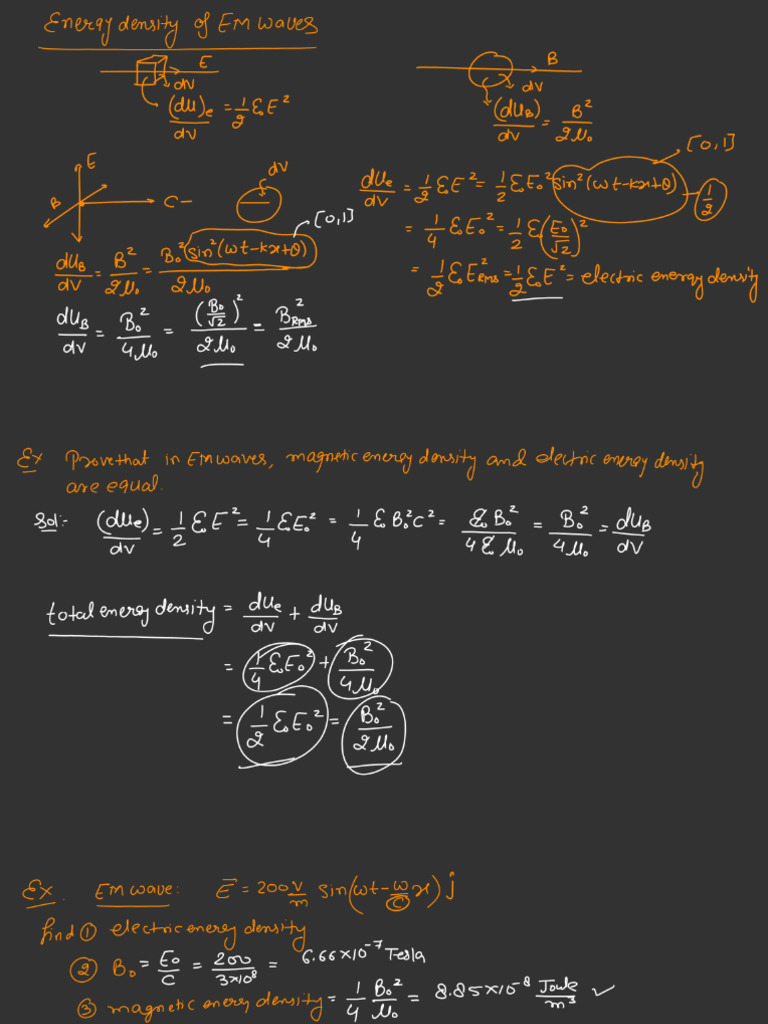 Energy density of EM waves
E
dV
(dU)e/dV = 1/2 ε₀E²
B
dV
(dUB)/dV = B²/2μ₀
E
B
C
dV
[0,1]
dUB/dV = B²/2μ₀ = B₀² sin²(ωt-kx+θ)/2μ₀
dUB/dV = B₀²/4μ₀ = (B₀/√2)²/2μ₀ = B²Rms/2μ₀
[0,1]
dUe/dV = 1/2 ε₀E² = 1/2 ε₀E₀² sin²(ωt-kx+θ) 1/2
= 1/4 ε₀E₀² = 1/2 ε₀(E₀/√2)²
= 1/2 ε₀E²Rms = 1/2 ε₀E² = electric energy density
Ex Prove that in EM waves, magnetic energy density and electric energy density
are equal.
Sol:- (dUe)/dV = 1/2 ε₀E² = 1/4 ε₀E₀² = 1/4 ε₀B₀²C² = ε₀B₀²/4ε₀μ₀ = B₀²/4μ₀ = dUB/dV
total energy density = dUe/dV + dUB/dV
= 1/4 ε₀E₀² + B₀²/4μ₀
= 1/2 ε₀E₀² = B₀²/2μ₀
Ex. EM wave: E⃗ = 200 V/m sin(ωt-ω/C x) ĵ
find ① electric energy density
② B₀ = E₀/C = 200/3×10⁸ = 6.66×10⁻⁷ Tesla
③ magnetic energy density = 1/4 B₀²/μ₀ = 8.85×10⁻⁸ Joule/m³ ✓